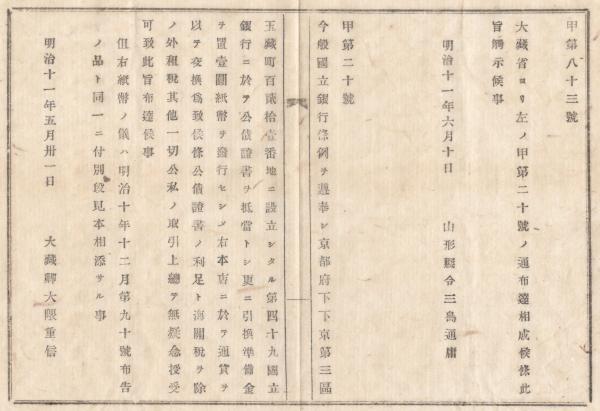 甲第八十三號
大藏省ヨリ左ノ甲第二十號ノ通布達相成候條此
旨觸示候事
明治十一年六月十日　山形縣令三島通庸
甲第二十號
今般國立銀行條例ヲ遵奉シ京都府下下京第三區
玉藏町百貳拾壹番地ニ設立シタル第四十九國立
銀行ニ於テ公債證書ヲ抵當トシ更ニ引換準備金
ヲ置壹圓紙幣ヲ發行セシメ右本店ニ於テ通貨ヲ
以テ交換爲致候條公債證書ノ利足ト海關稅ヲ除
ノ外租稅其他一切公私ノ取引上總テ無疑念授受
可致此旨布達候事
但右紙幣ノ儀ハ明治十年十二月第九十號布告
ノ品ト同一ニ付別段見本相添サル事
明治十一年五月卅一日　大藏卿大隈重信